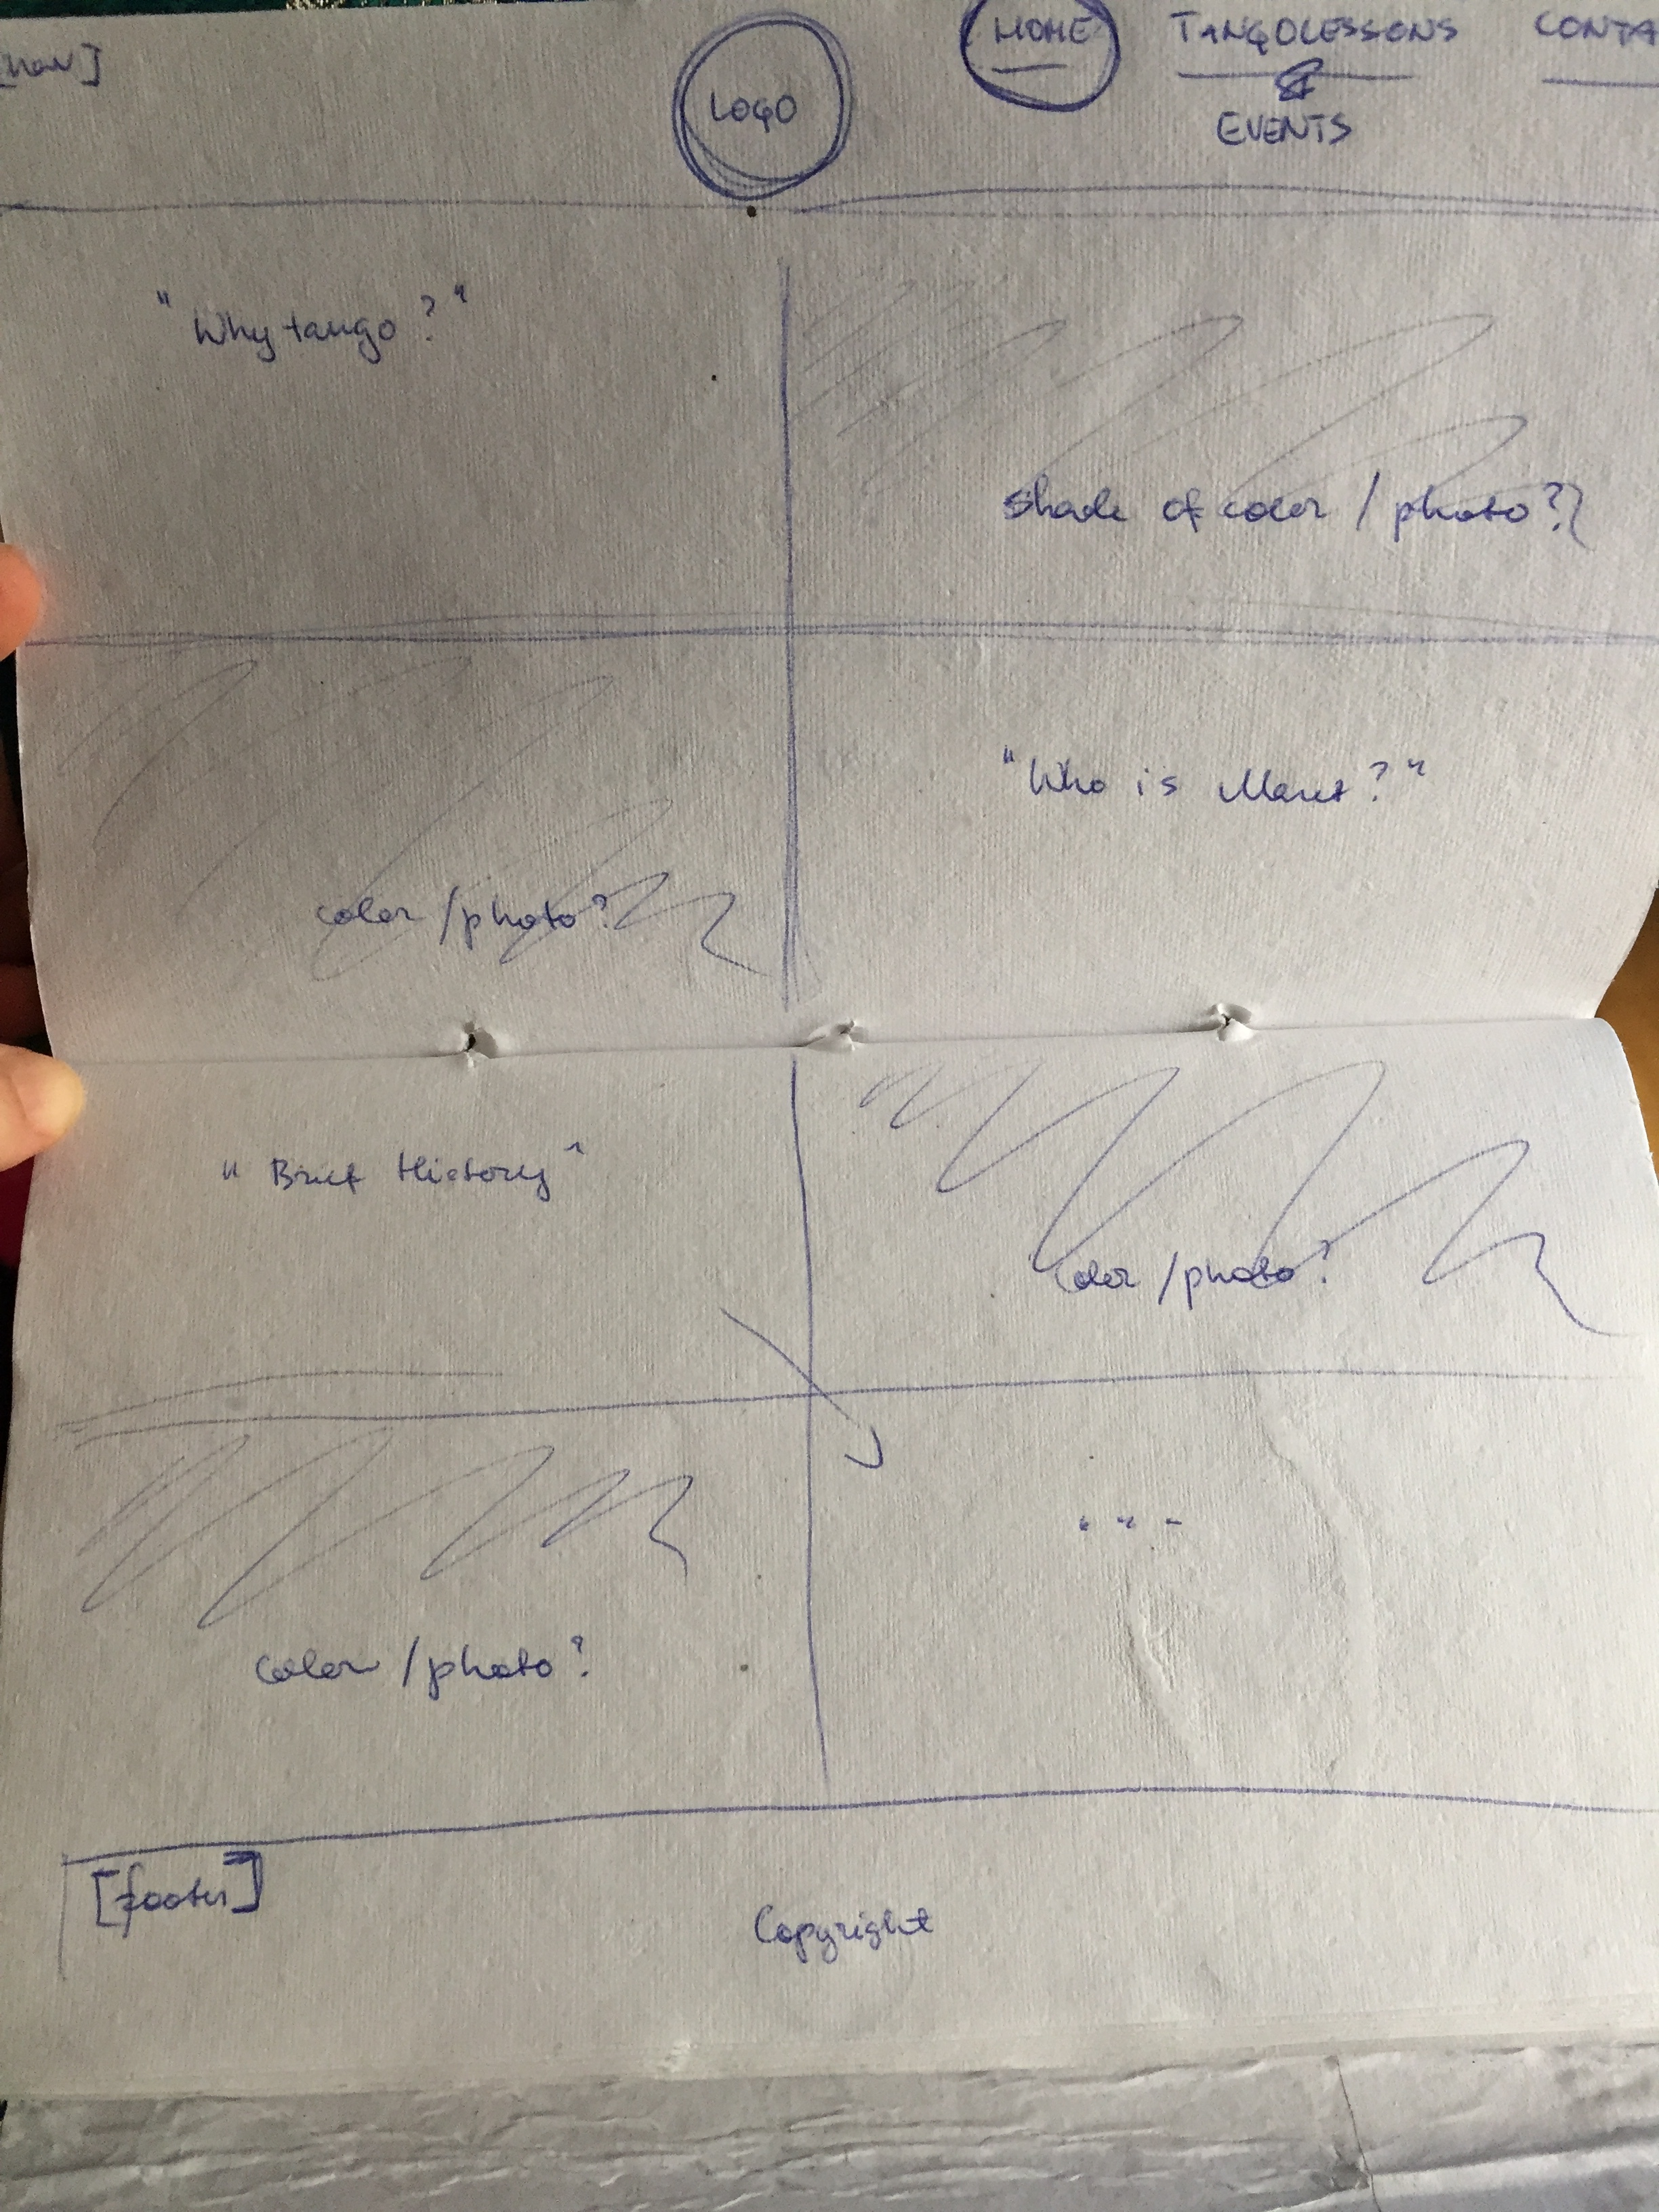 [nav]
LOGO
HOME
TANGOLESSONS
&
EVENTS
CONTA
"Why tango?"
shade of color / photo?
color / photo?
"Who is Maret?"
"Brief History"
color / photo?
color / photo?
[footer]
Copyright